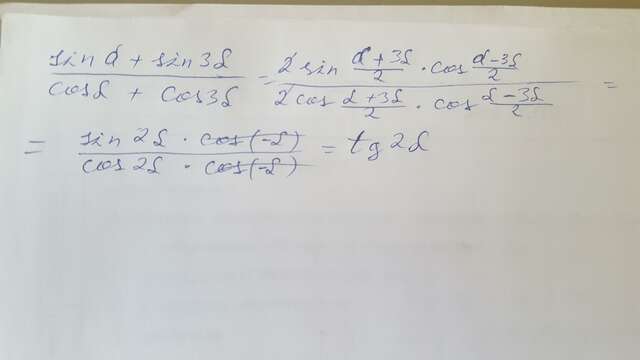 (sin α + sin 3α)/(cos α + cos 3α) = (2 sin (α+3α)/2 · cos (α-3α)/2)/(2 cos (α+3α)/2 · cos (α-3α)/2) =
= (sin 2α · cos(-α))/(cos 2α · cos(-α)) = tg 2α